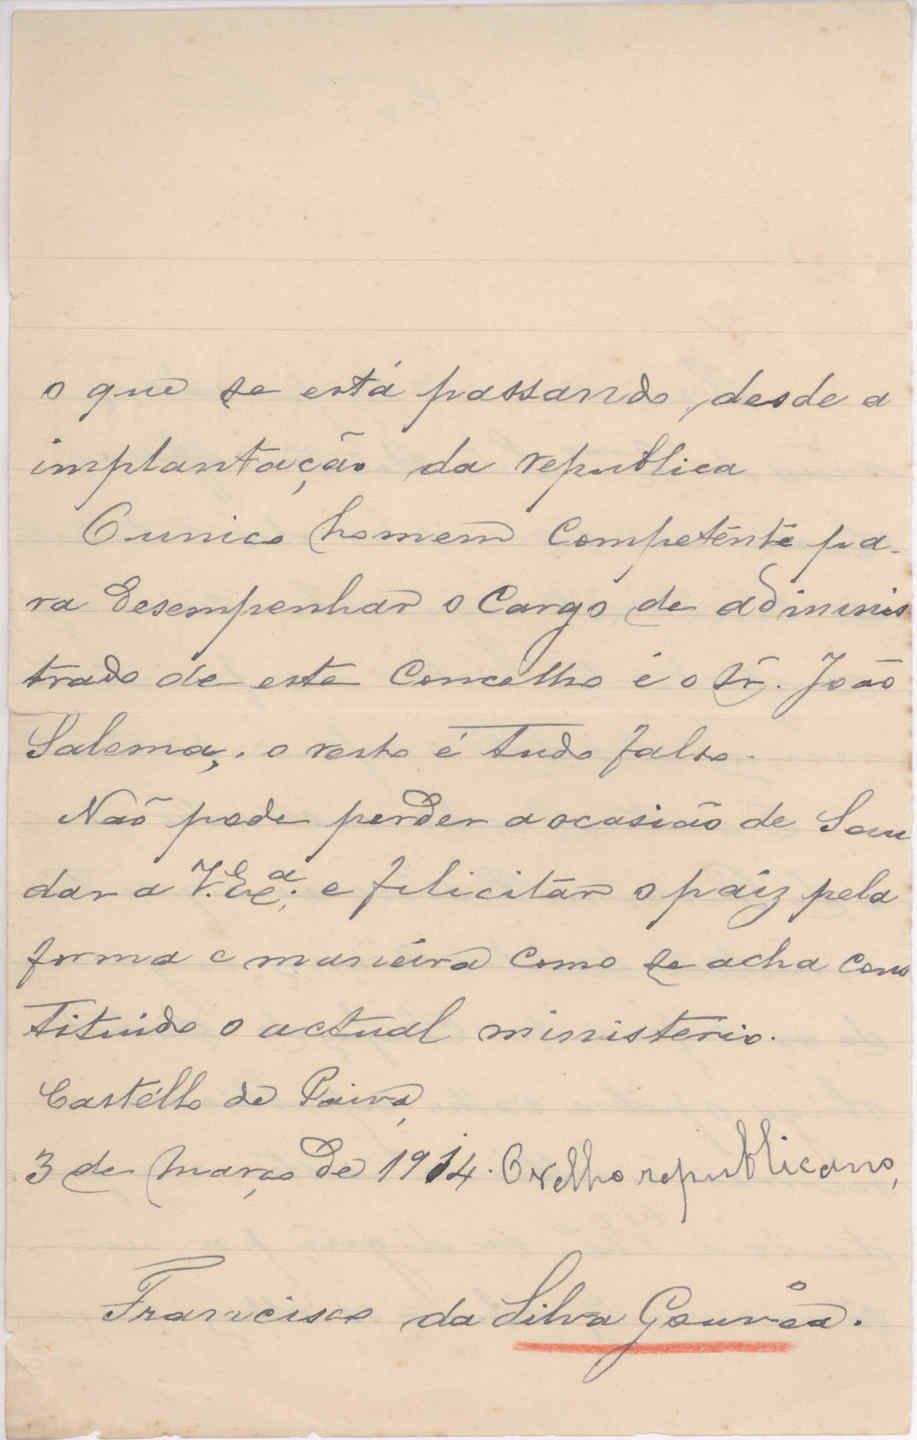 o que se está passando, desde a
implantação da republica
O unico homem competente pa-
ra desempenhar o cargo de adminis
trado de este Concelho é o Sr. João
Salema,. o resto é tudo falso.
Não pode perder a ocasião de Sau
dar a V. Exª; e felicitar o paiz pela
forma e maneira como se acha cons
tituido o actual ministerio.
Castéllo de Paiva,
3 de Março de 1914. O velho republicano,
Francisco da Silva Gouvêa.